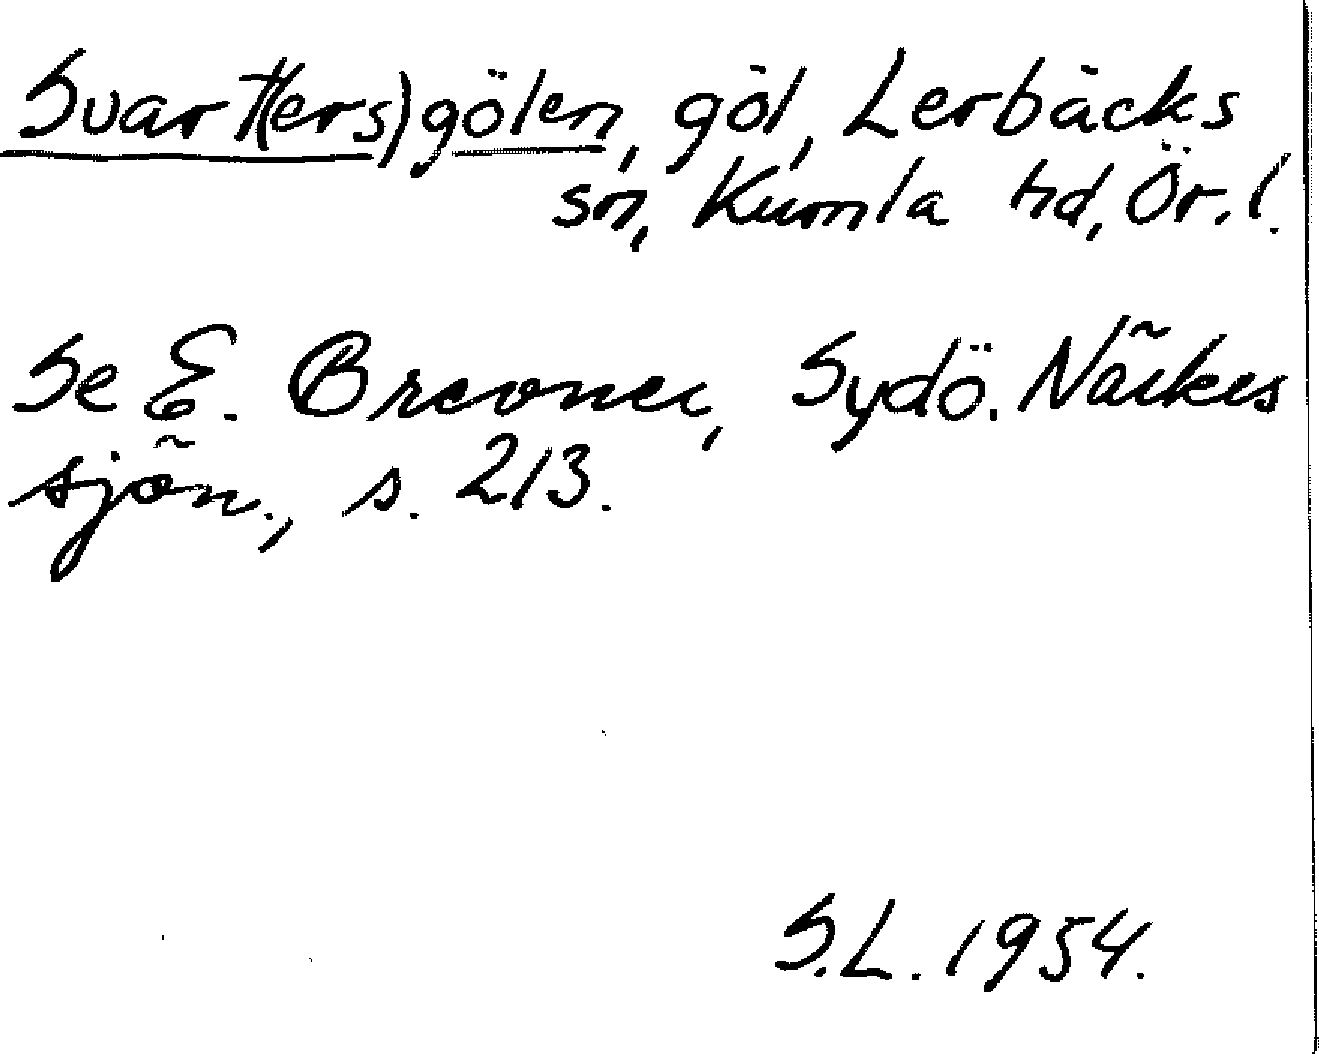 Svart(ers)gölen, göl, Lerbäcks
sn, Kumla hd, Ör. l.
Se E. Brevner, Sydö. Närkes
sjön., s. 213.
S.L. 1954.